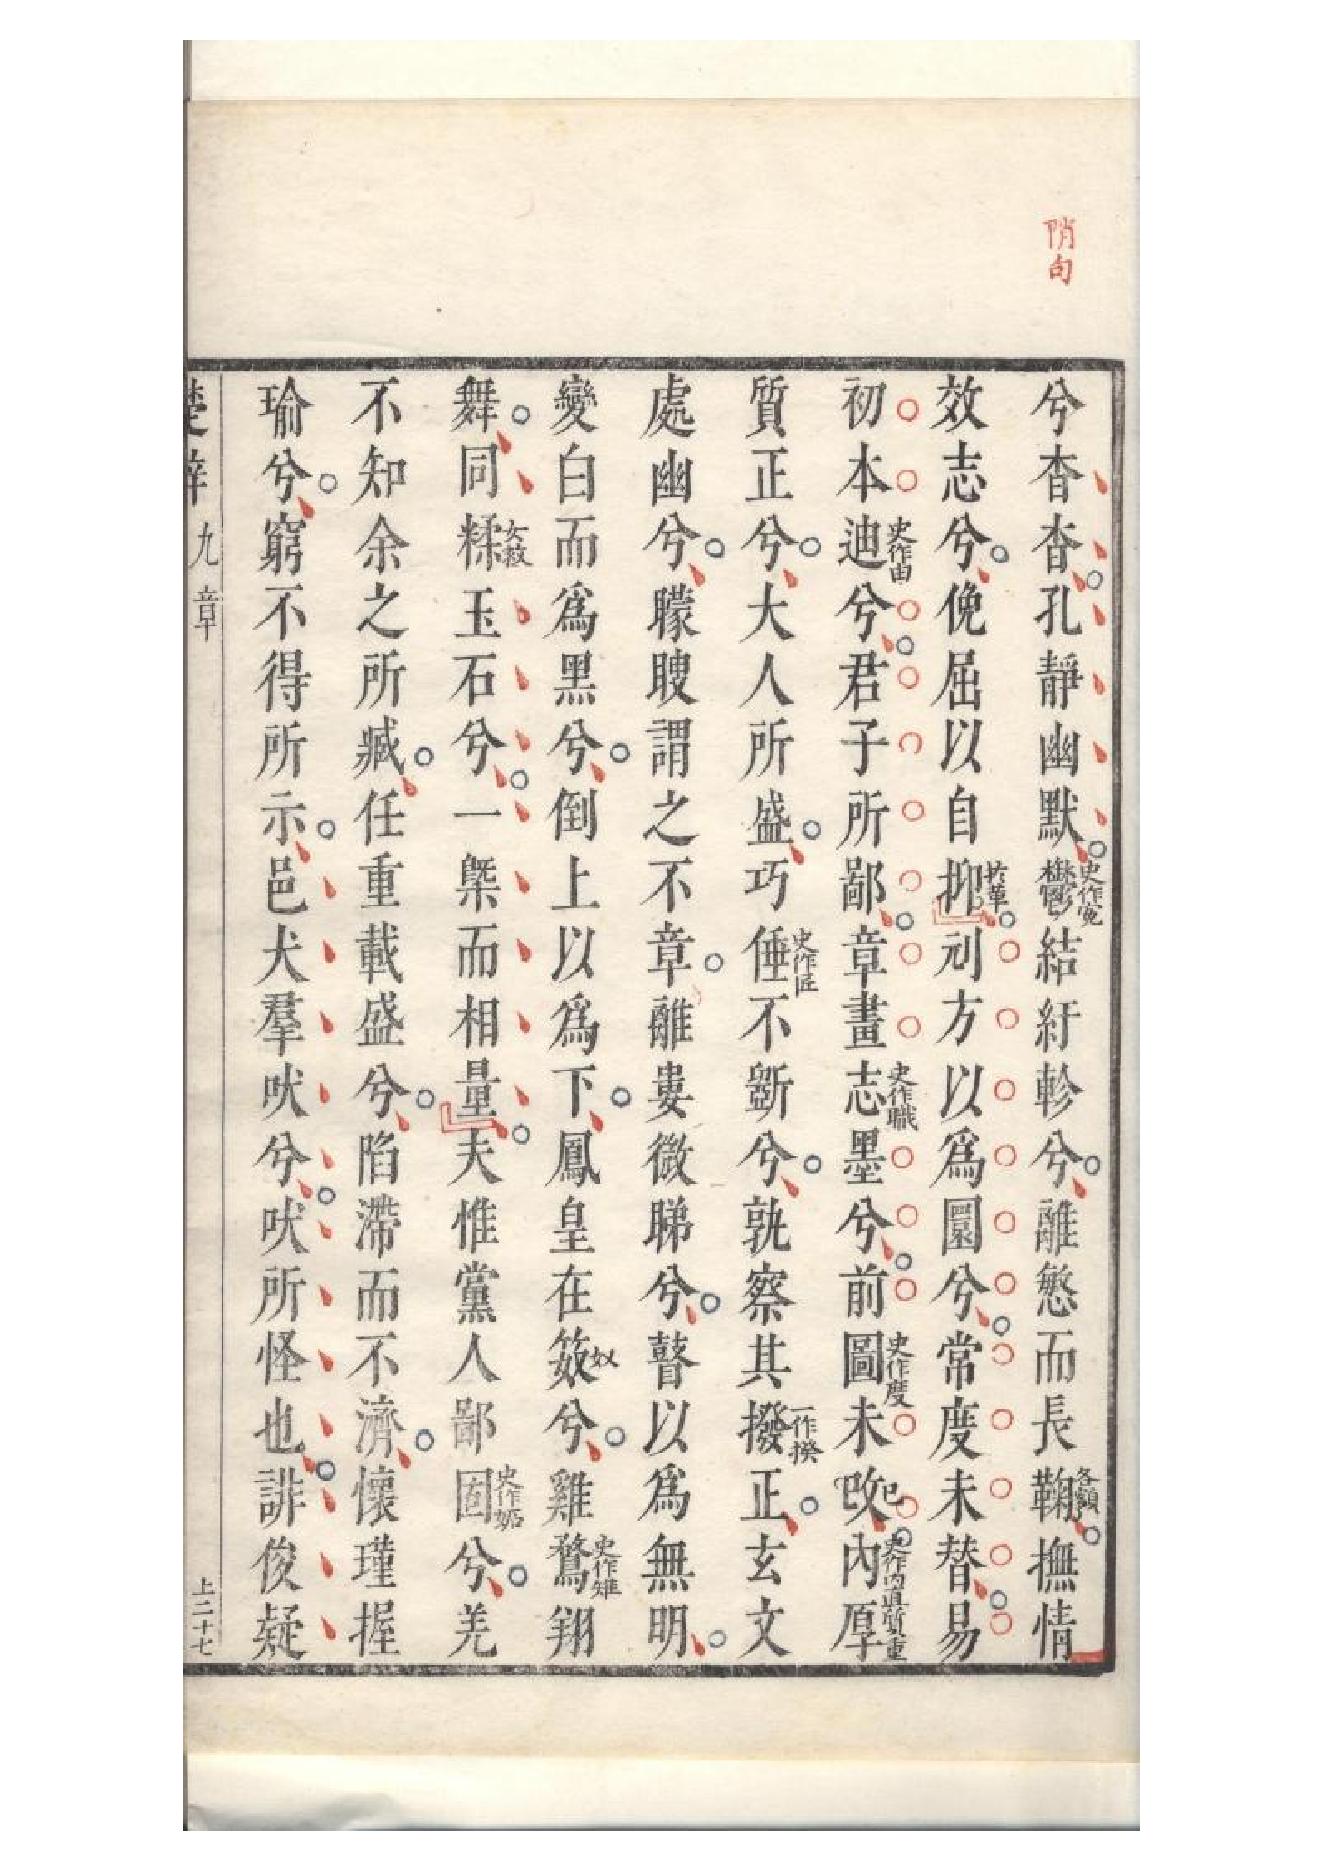 陗句
兮杳杳孔靜幽默鬱史作寃結紆軫兮離慜而長鞠各額撫情
效志兮俛屈以自抑於革刓方以爲圜兮常度未替易
初本迪史作由兮君子所鄙章畫志史作職墨兮前圖史作度未改已內厚史作內直質重
質正兮大人所盛巧倕史作匠不斵兮孰察其撥一作揆正玄文
處幽兮矇瞍謂之不章離婁微睇兮瞽以爲無明
變白而爲黑兮倒上以爲下鳳皇在笯奴兮雞鶩史作雉翔
舞同糅女救玉石兮一槩而相量夫惟黨人鄙固史作妬兮羌
不知余之所臧任重載盛兮陷滯而不濟懷瑾握
瑜兮窮不得所示邑犬羣吠兮吠所怪也誹俊疑
楚辭 九章 上二十七